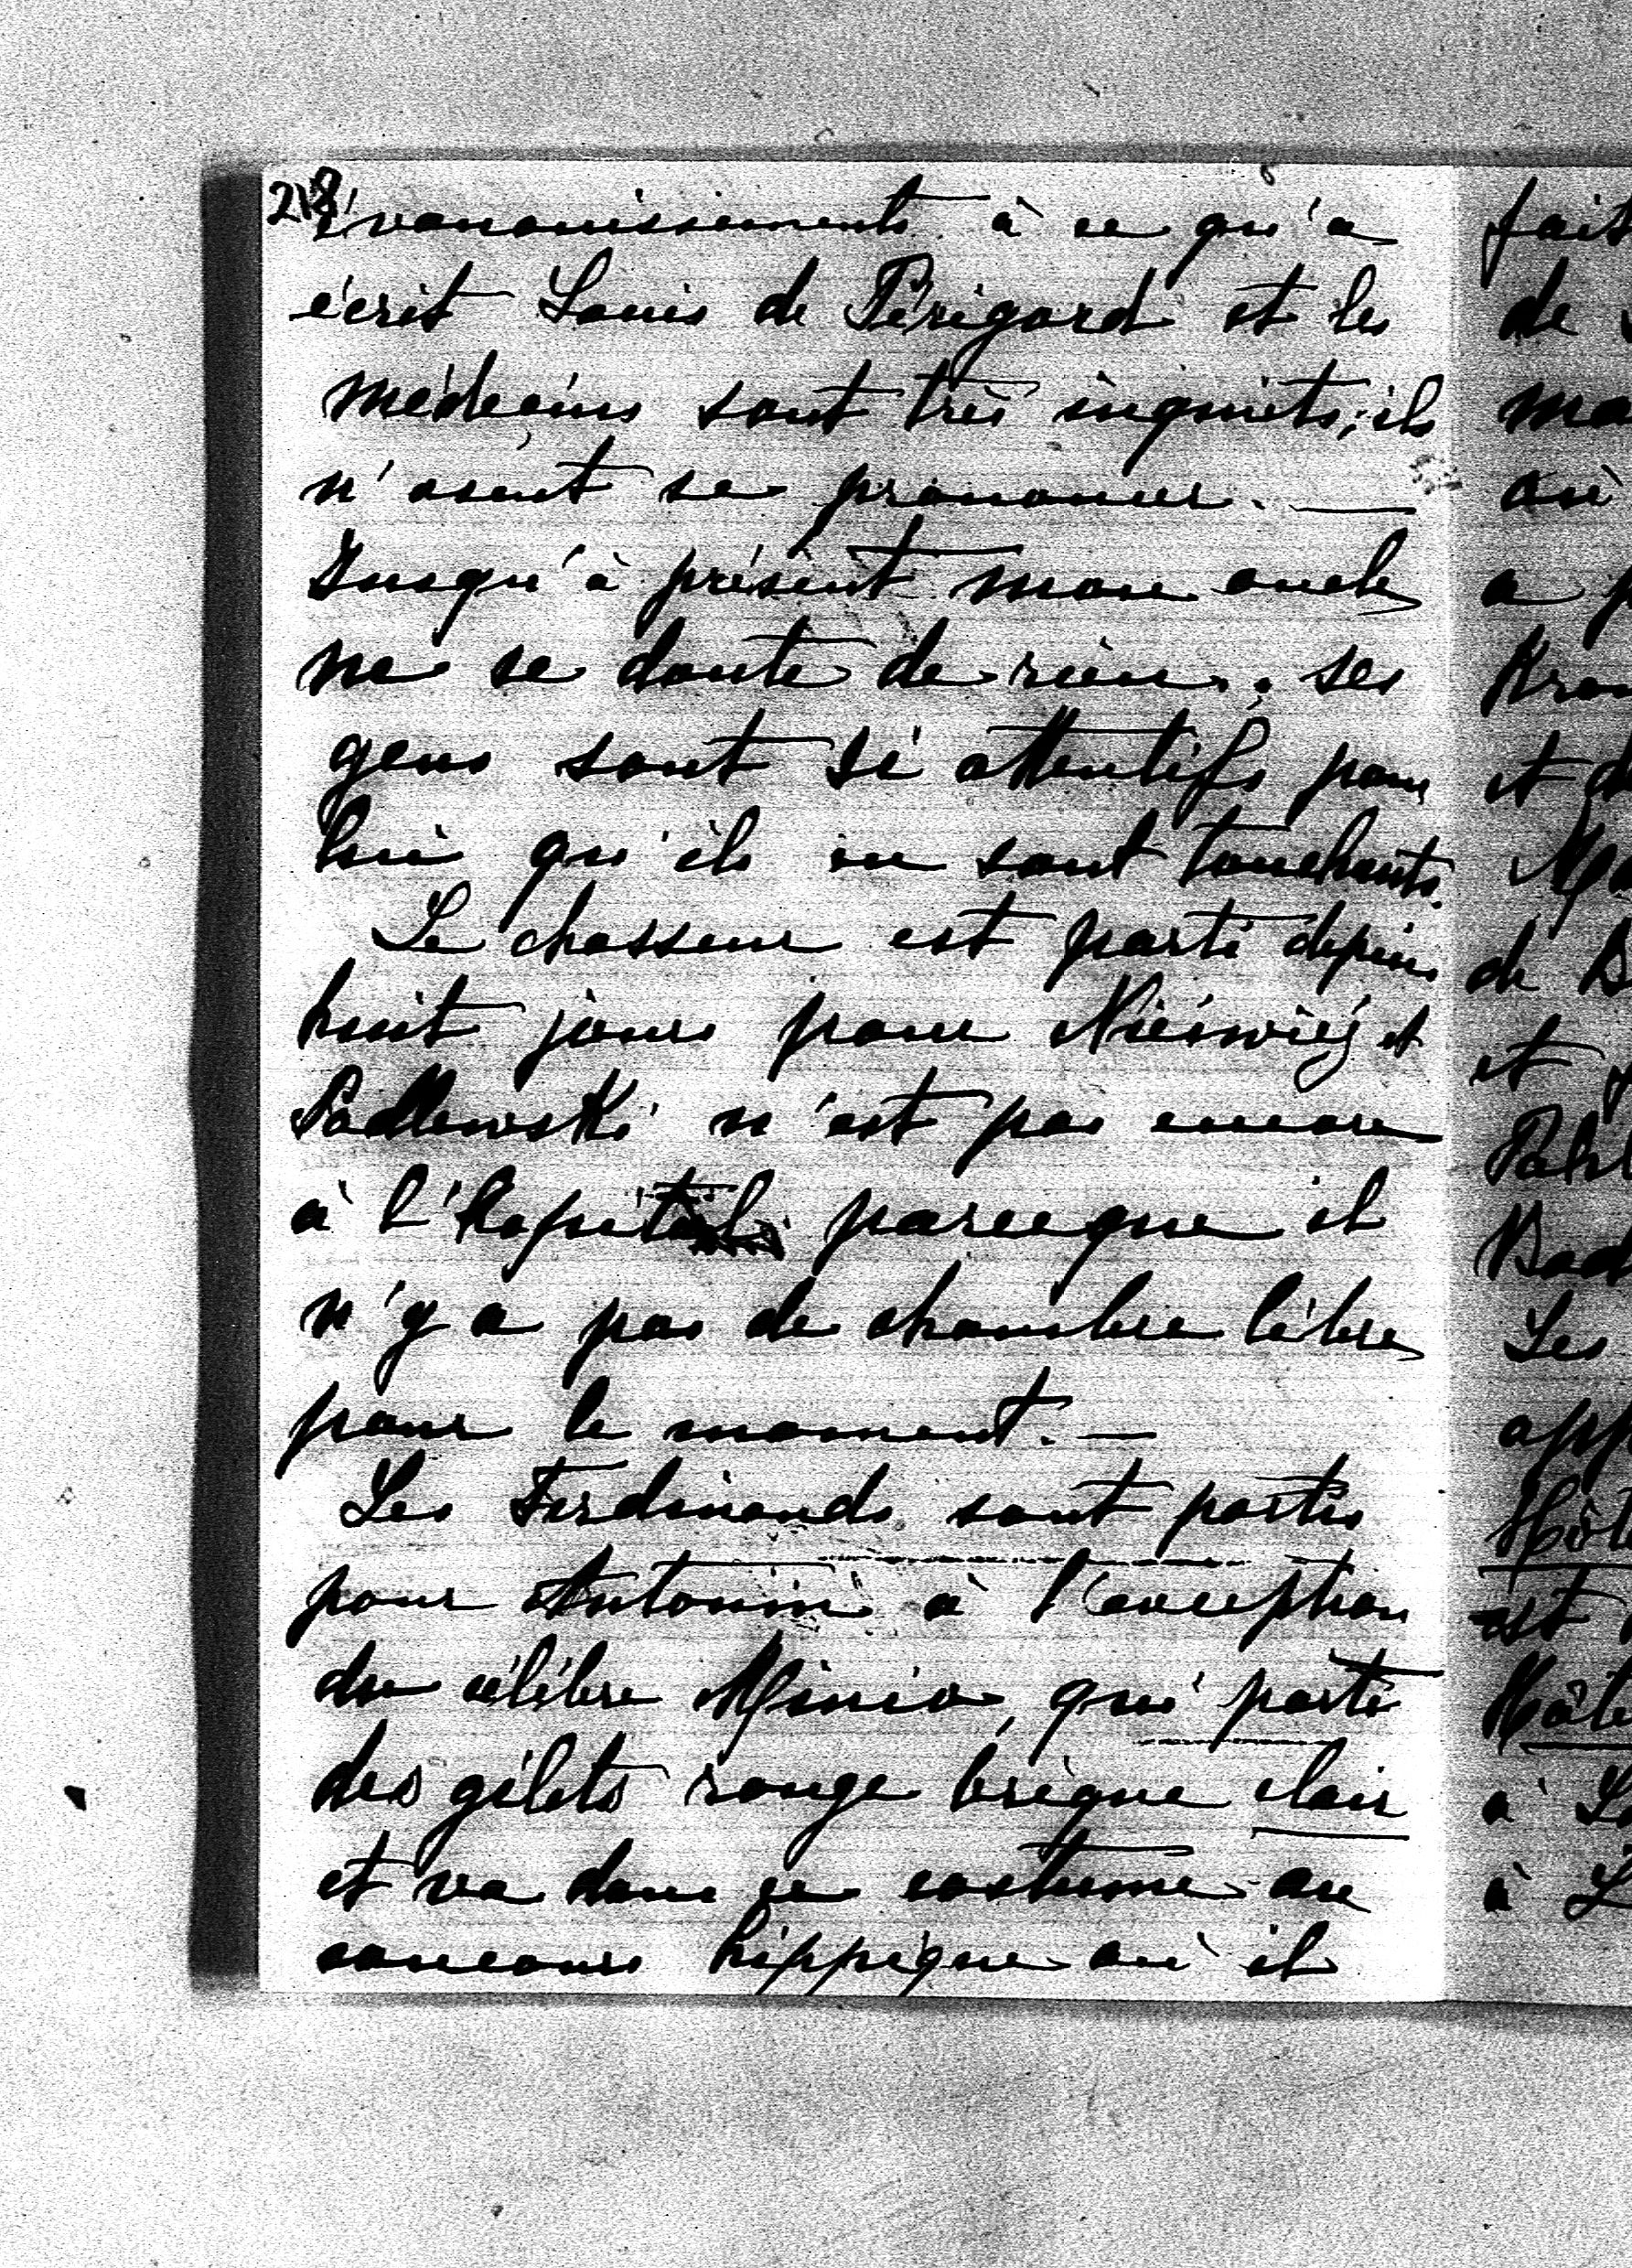 218
évanouissements à ce qu'a
écrit Louis de Périgord et les
médecins sont très inquiets; ils
n'osent se prononcer. —
Jusqu'à présent mon oncle
ne se doute de rien; ses
gens sont si attentifs pour
lui qu'ils en sont touchants.
Le chasseur est parti depuis
huit jours pour Nieświéz et
Padlewski n'est pas encore
à l'hopital parceque il
n'y a pas de chambre libre
pour le moment. —
Les Ferdinands sont partis
pour Antonin à l'exception
du célèbre Minio, qui porte
des gilets rouge brique clair
et va dans ce costume au
concours hippique où il
fait
de
ma
où
a
et
de
et
Les
app
est
à
à